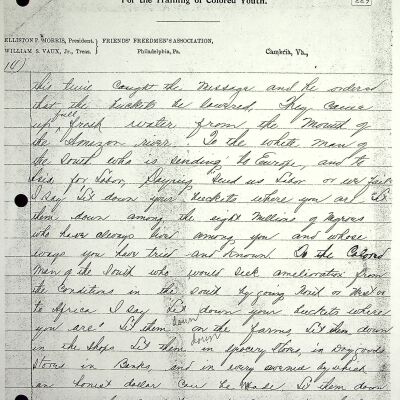 For the Training of Colored Youth.
ELLISTON P. MORRIS, President, FRIENDS' FREEDMEN'S ASSOCIATION,
WILLIAM S. VAUX, Jr., Treas. Philadelphia, Pa. Cambria, Va.,
10)
this time caught the message and he ordered
that the buckets be lowered, They came
up full fresh water from the mouth of
the Amazon river. To the white man of
the South who is sending to Europe, and to
for labor, saying send us labor or we
I say "let down your buckets where you are" let
them down among the eight millions of Negroes
who have always lived among you and whose
ways you have tried and known. Or the Colored
Man of the South who would seek amelioration from
the conditions in the South by going North or West or
to Africa I say "let down your buckets where
you are" Let them down on the farms let them down
in the shops let them down in grocery stores, in dry goods
stores in Banks, and in every avenue by which
an honest dollar can be made. Let them down